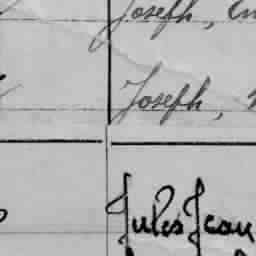 Joseph,
Joseph,
Jules Jean